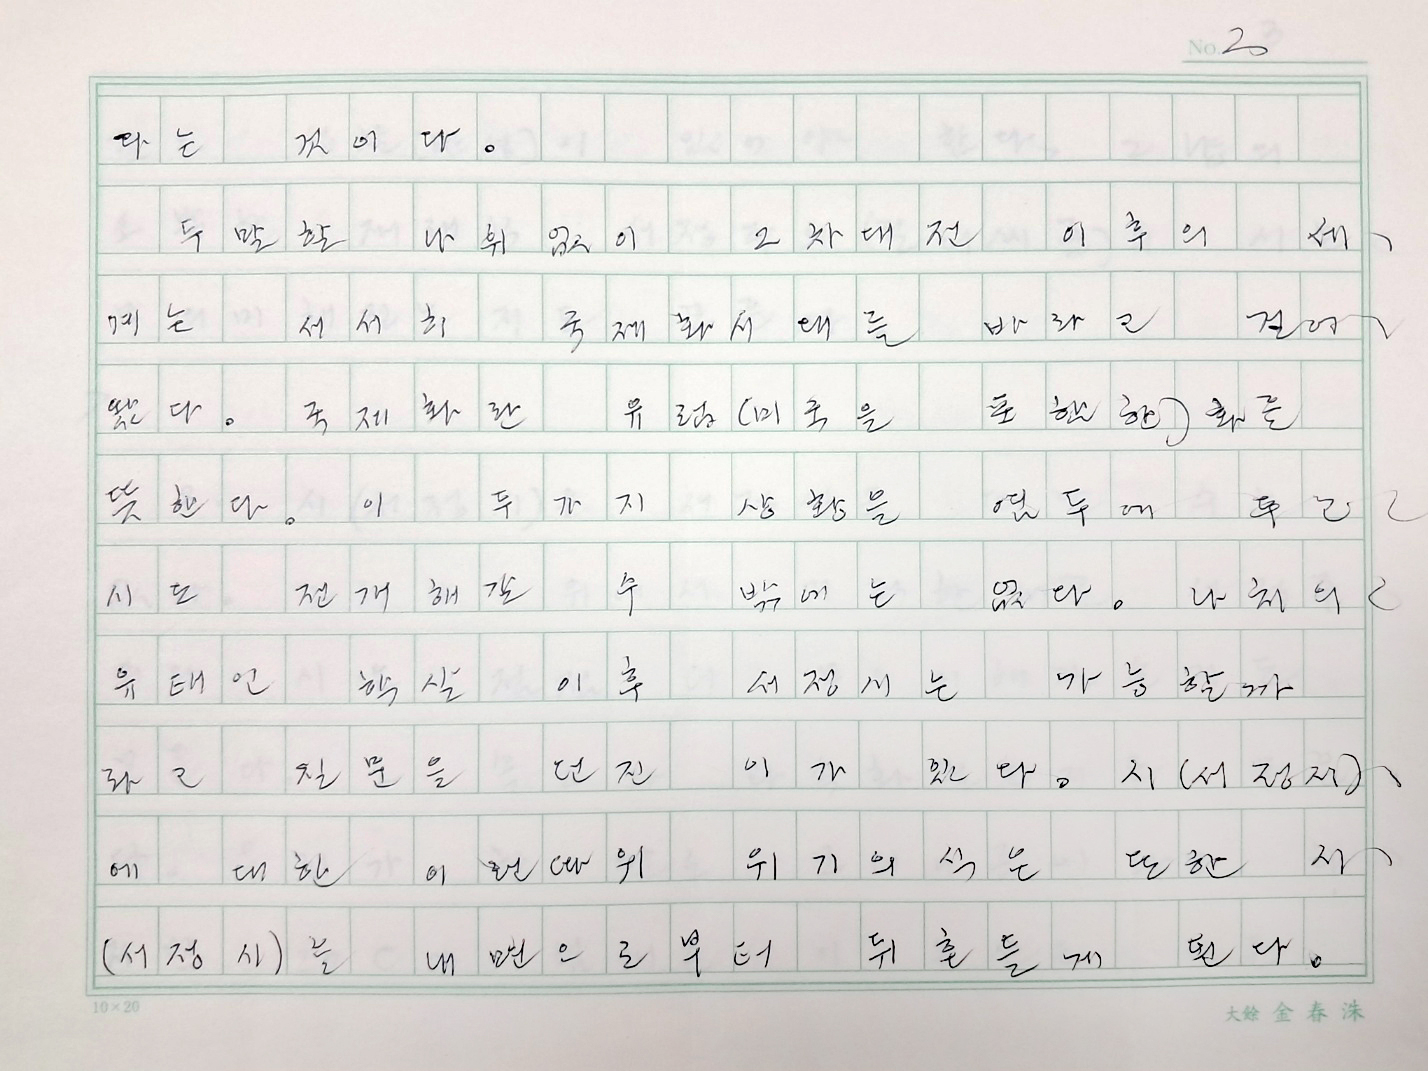 No. 2
다는 것이다.
두말할 나위 없이 2차대전 이후의 세
계는 서서히 국제화시대를 바라고 걸어
왔다. 국제화란 유럽(미국을 포함한)화를
뜻한다. 이 두가지 상황을 염두에 두고
시도 전개해갈 수 밖에는 없다. 나치의
유태인 학살 이후 서정시는 가능할까
라고 질문을 던진 이가 있다. 시(서정시)
에 대한 이런따위 위기의식은 또한 시
(서정시)를 내면으로부터 뒤흔들게 된다.
10×20
大餘 金春洙